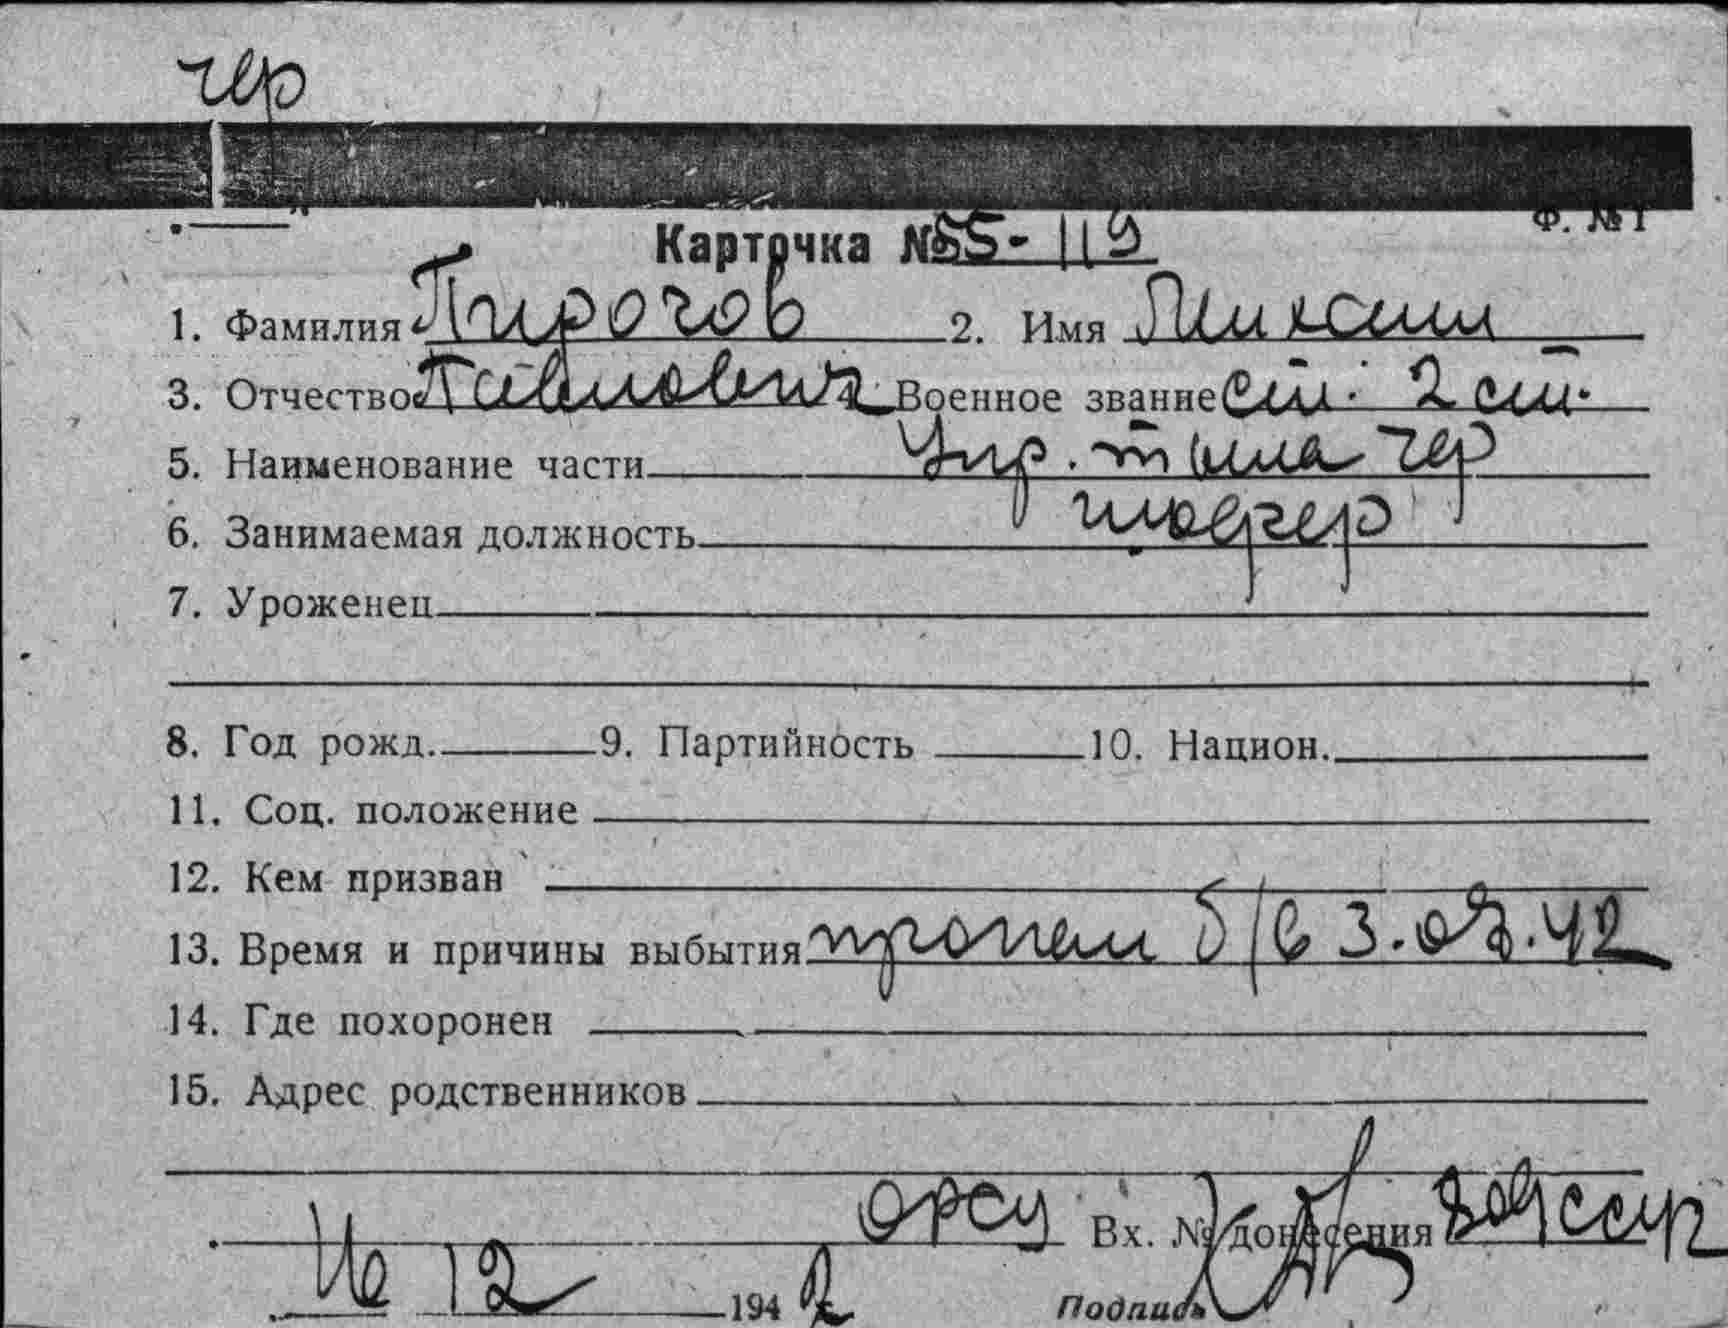 чер
Ф. №1
Карточка №55-119
1. Фамилия Пирогов 2. Имя Михаил
3. Отчество Павлович Военное звание ст. 2 ст.
5. Наименование части Упр. тыла чер
6. Занимаемая должность шофер
7. Уроженец
8. Год рожд. 9. Партийность 10. Национ.
11. Соц. положение
12. Кем призван
13. Время и причины выбытия пропал б/в 3.07.42
14. Где похоронен
15. Адрес родственников
орсу Вх. № донесения
12 1942 Подпись